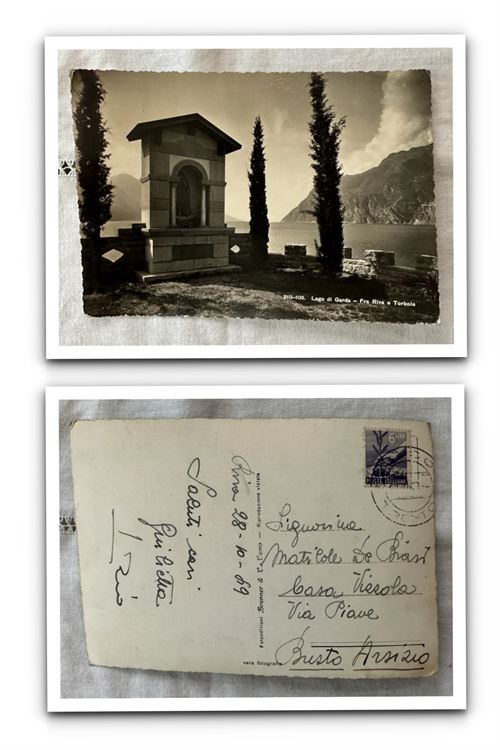 310-106. Lago di Garda - Fra Riva e Torbole
Riva 28-10-49
Saluti cari
Giulietta
Fotoedizioni Brunner & C. - Como - Riproduzione vietata
vera fotografia
6 LIRE
POSTE ITALIANE
Signorina
Matilde De Biasi
Casa Vizzola
Via Piave
Busto Arsizio